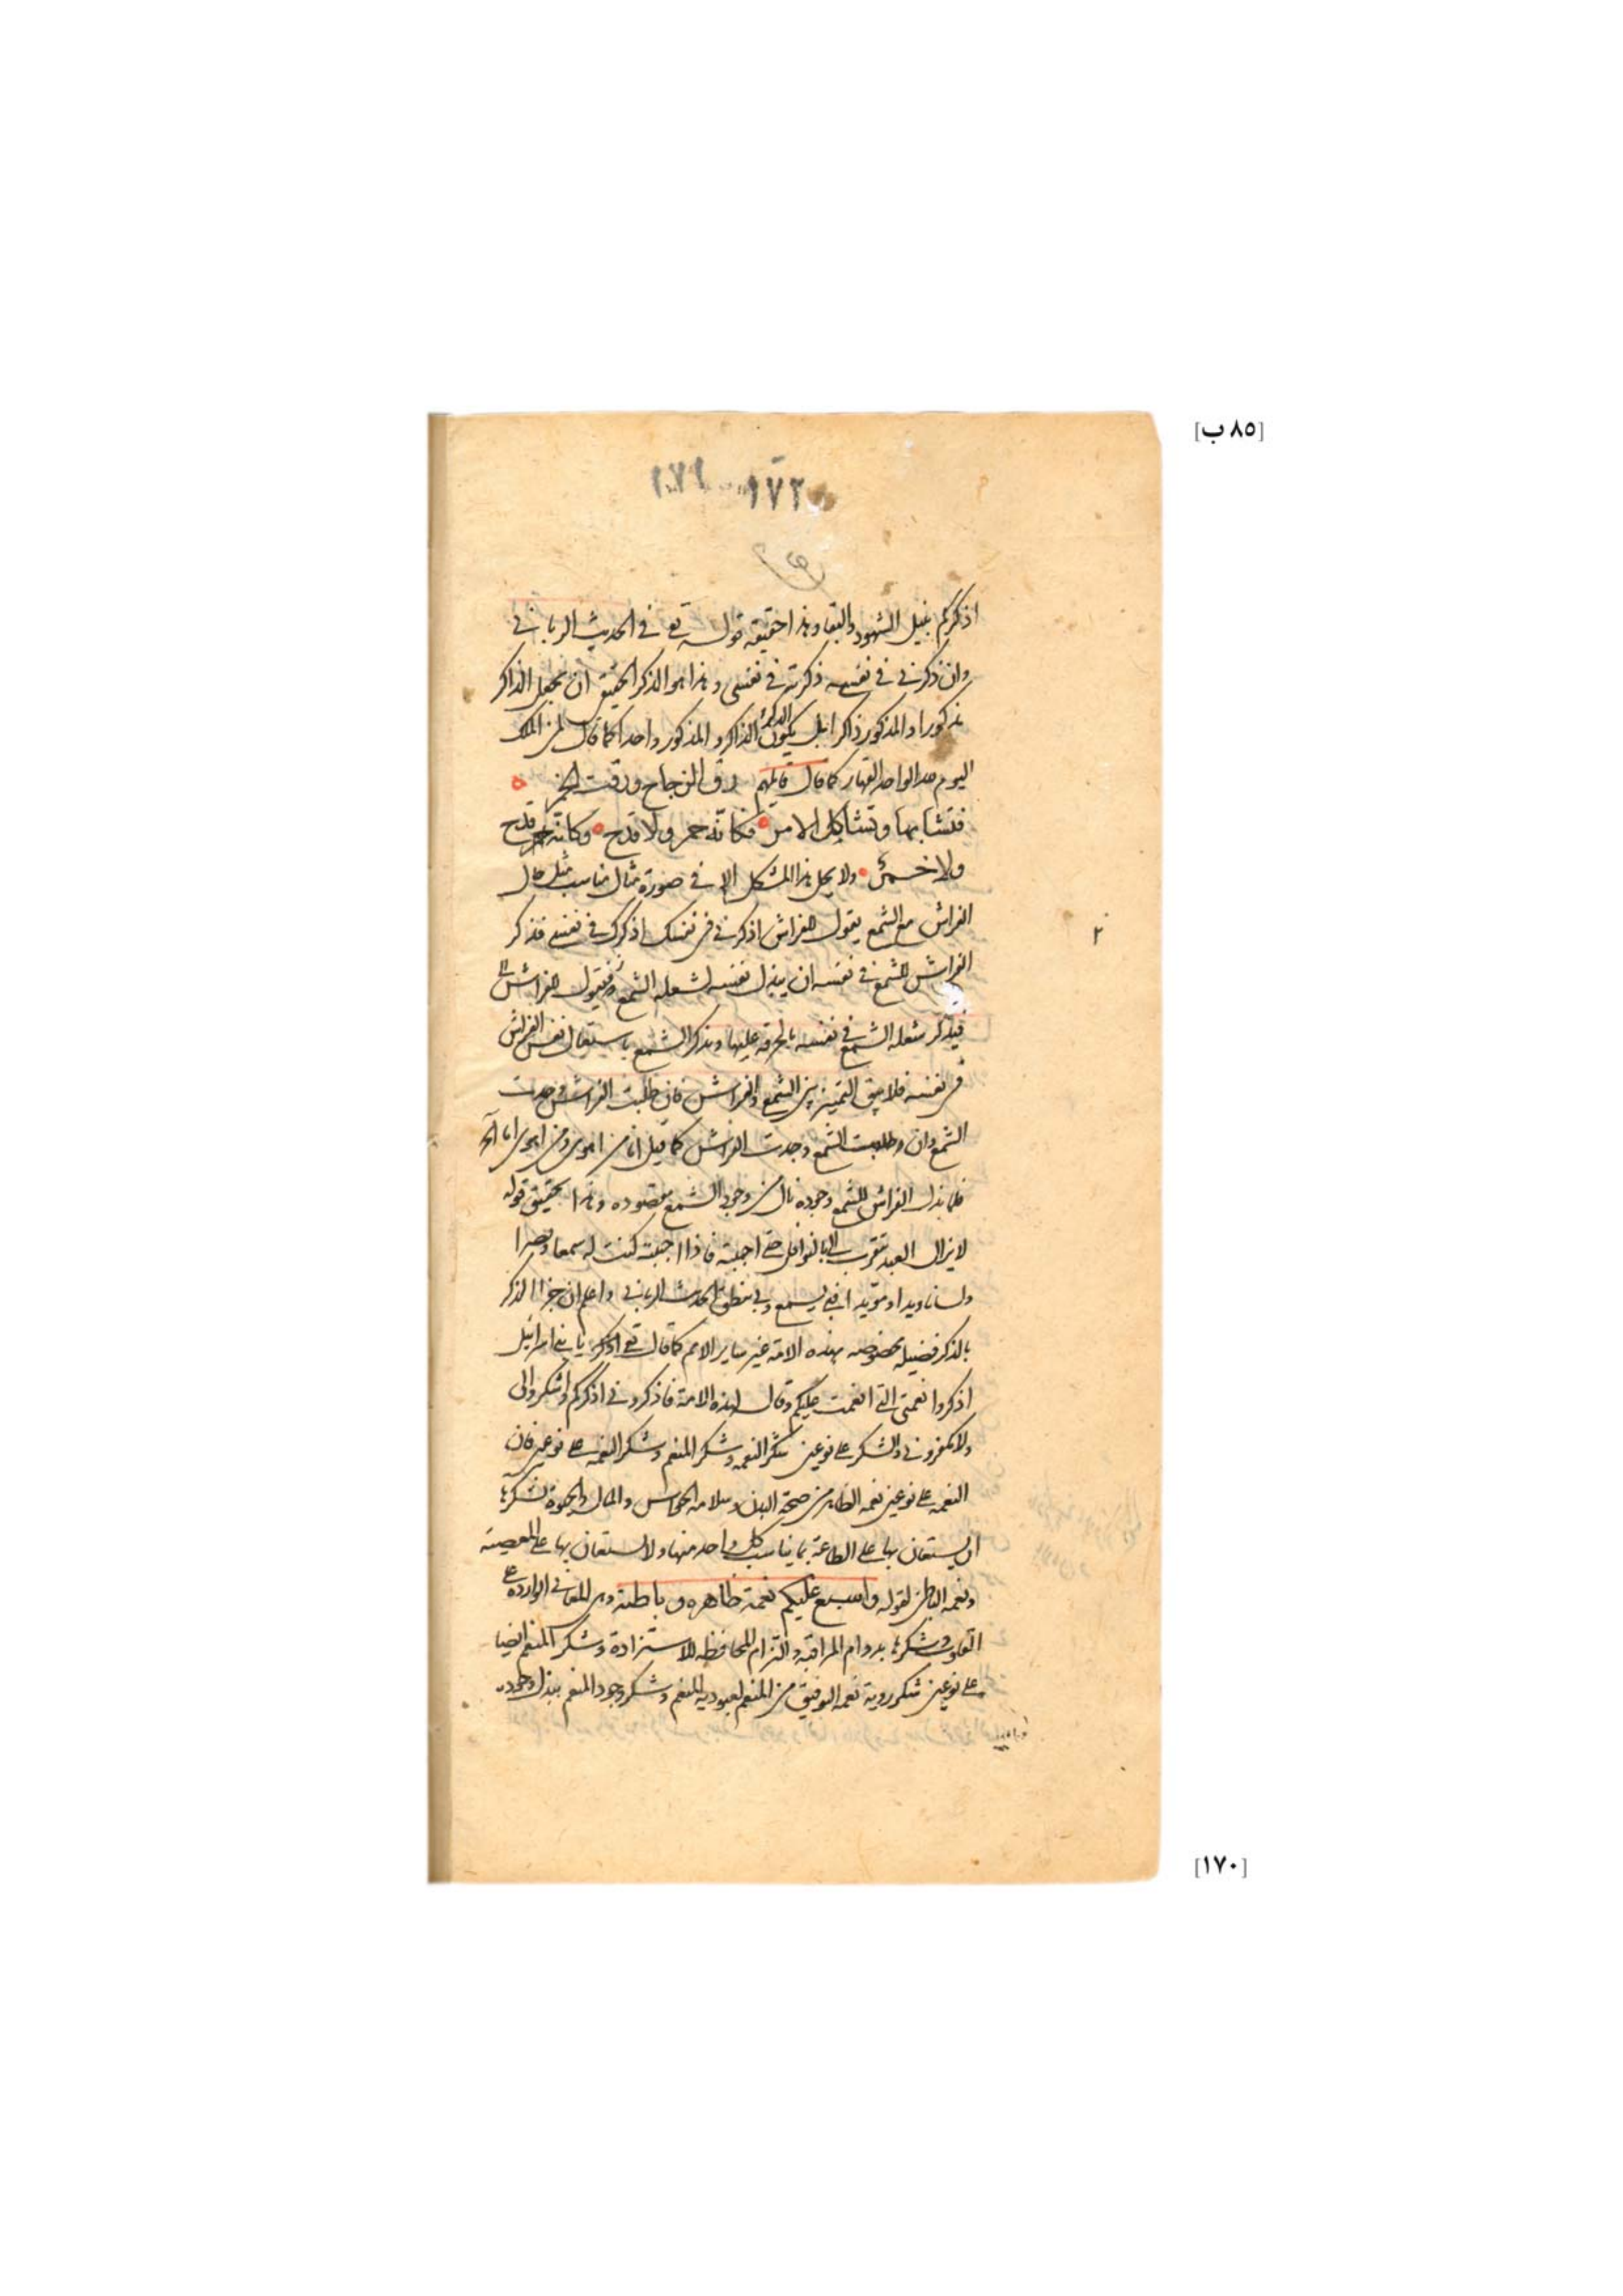 [٨٥ ب]
١٧٢ ١٧١
اذكركم بنيل الشهود والبقا وهذا حقيقة قوله تع في الحديث الرباني
وان ذكرني في نفسه ذكرته في نفسي وهذا هو الذكر الحقيقي ان يجعل الذاكر
مذكورا والمذكور ذاكرا بل يكون الذكر الذاكر والمذكور واحدا كما قال لمن الملك
اليوم لله الواحد القهار كما قال قائلهم رق الزجاج ورقت الخمر
فتشابها وتشاكل الامر فكانه خمر ولا قدح وكانه قدح
ولا خمر ولا يحل هذا المشكل الا في صورة مثال مناسب مثل حال
الفراش مع الشمع يقول للفراش اذكرني في نفسك اذكرك في نفسي فذكر
الفراش للشمع في نفسه ان يبذل نفسه لشعلة الشمع فيقول للفراش
فيذكر شعله الشمع في نفسه بالحرقة عليها ويذكر الشمع باستعمال نفس الفراش
في نفسه فلا يبقى التميز بين الشمع والفراش فان طلبت الفراش وجدت
الشمع وان طلبت الشمع وجدت الفراش كما قيل انا من اهوى ومن اهوى انا
فلما بذل الفراش للشمع وجوده نال من وجود الشمع مقصوده وهذا تحقيق قوله
لا يزال العبد يتقرب الي بالنوافل حتى احبه فاذا احببته كنت له سمعا وبصرا
ولسانا ويدا ومؤيدا فبي يسمع وبي ينطق الحديث الرباني واعلم ان جزا الذكر
بالذكر فضيله مخصوصه بهذه الامة غير ساير الامم كما قال تع يا بني اسرائيل
اذكروا نعمتي التي انعمت عليكم وقال لهذه الامة فاذكروني اذكركم واشكروا لي
ولا تكفرون والشكر على نوعين شكر النعمه وشكر المنعم وشكر النعمه على نوعين فان
النعمه على نوعين نعمه الظاهر من صحة البدن وسلامه الحواس والمال والحيوة فشكرها
ان يستعان بها على الطاعة بما يناسب كل واحد منها ولا يستعان بها على المعصية
ونعمه الباطن لقوله واسبغ عليكم نعمه ظاهره وباطنة وهي المعاني الوارده على
القلوب وشكرها بدوام المراقبة والتزام المحافظه للاستزادة وشكر المنعم ايضا
على نوعين شكر روية نعمه التوفيق من المنعم لعبودية المنعم وشكر وجود المنعم ببذل وجوده
٢
[١٧٠]